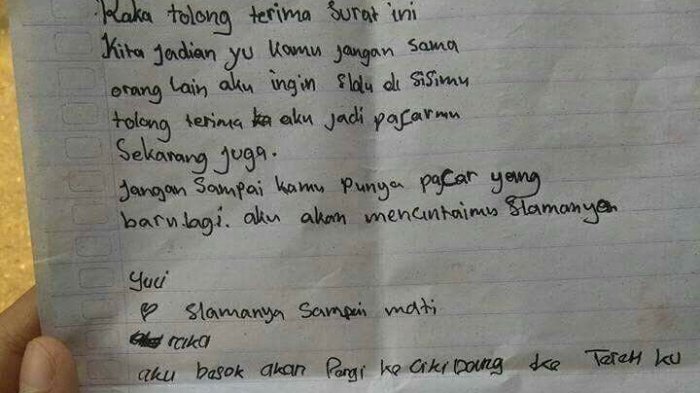 Raka tolong terima surat ini
Kita jadian yu kamu jangan sama
orang lain aku ingin slalu di sisimu
tolong terima aku jadi pacarmu
Sekarang juga.
jangan sampai kamu punya pacar yang
baru lagi. aku akan mencintaimu slamanya
Yuci
slamanya sampai mati
raka
aku besok akan Pargi ke